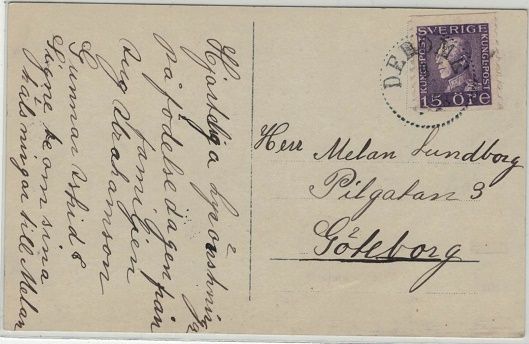 Hjärtliga Lyckönskning
på födelsedagen från
familjen
Aug Abrahamson
Gunnar Astrid &
Signe be om sina
hälsningar till Melan
SVERIGE
KUNGL·POST
KUNGL·POST
15 ÖRE
DEROME
Herr Melan Lundborg
Pilgatan 3
2
Göteborg